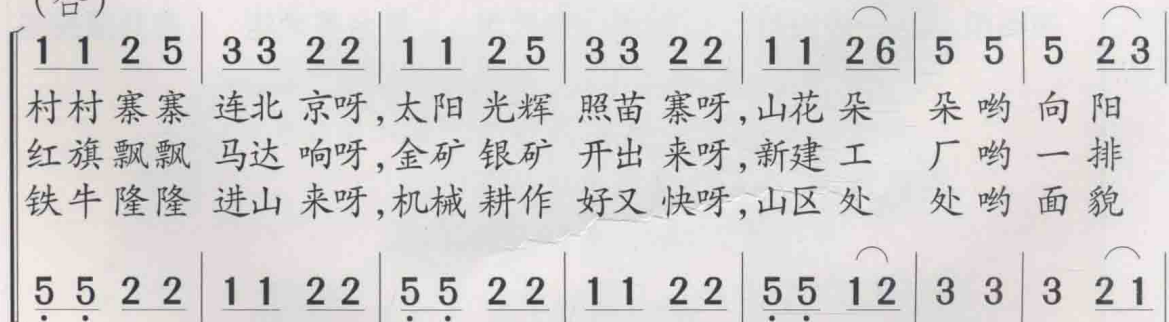 （合）
1 1 2 5 | 3 3 2 2 | 1 1 2 5 | 3 3 2 2 | 1 1 2 6 | 5 5 | 5 2 3 |
村村寨寨 连北京呀,太阳光辉 照苗寨呀,山花朵 朵哟 向阳
红旗飘飘 马达响呀,金矿银矿 开出来呀,新建工 厂哟 一排
铁牛隆隆 进山来呀,机械耕作 好又快呀,山区处 处哟 面貌
5 5 2 2 | 1 1 2 2 | 5 5 2 2 | 1 1 2 2 | 5 5 1 2 | 3 3 | 3 2 1 |